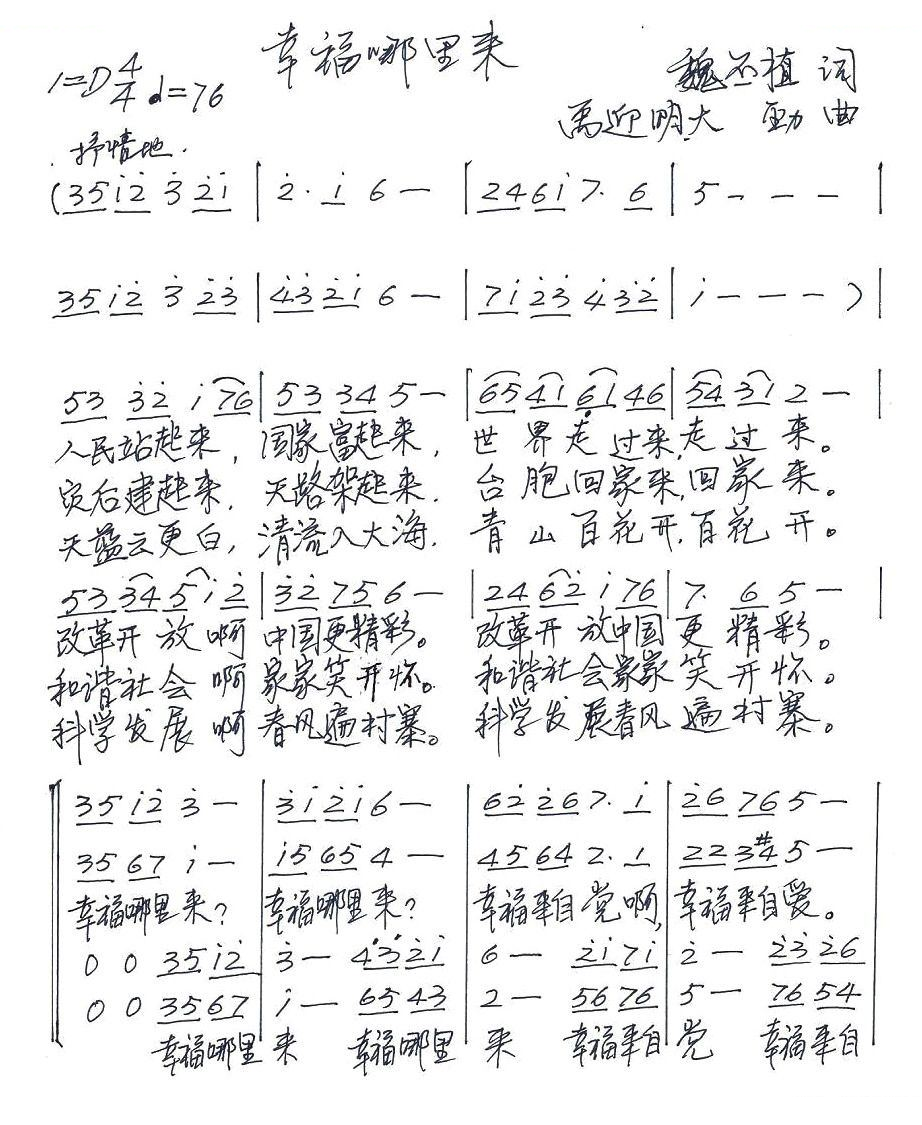 幸福哪里来
1=D 4/4 ♩=76
魏丕植 词
禹迎明 大勁 曲
抒情地.
(35 i̇2̇ 3̇ 2̇i̇ | 2̇. i̇ 6 — | 246i̇ 7. 6 | 5 — — — |
35 i̇2̇ 3̇ 2̇3̇ | 4̇3̇ 2̇i̇ 6 — | 7i̇ 2̇3̇ 4̇ 3̇2̇ | i̇ — — — ) |
53 3̇2̇ i̇ 76 | 53 34 5 — | 65 41 6̣1 46 | 54 31 2 — |
人民站起来, 国家富起来, 世界走过来,走过来。
灾后建起来, 天路架起来, 台胞回家来,回家来。
天蓝云更白, 清流入大海, 青山百花开,百花开。
53 34 5 i̇ 2̇ | 3̇2̇ 75 6 — | 24 62̇ i̇ 76 | 7. 6 5 — |
改革开放啊 中国更精彩。 改革开放中国更精彩。
和谐社会啊 家家笑开怀。 和谐社会家家笑开怀。
科学发展啊 春风遍村寨。 科学发展春风遍村寨。
35 i̇2̇ 3̇ — | 3̇i̇ 2̇i̇ 6 — | 62̇ 2̇6 7. i̇ | 2̇6 76 5 — |
35 67 i̇ — | i̇5 65 4 — | 45 64 2. 1 | 22 3#4 5 — |
幸福哪里来? 幸福哪里来? 幸福来自党啊, 幸福来自爱。
0 0 35 i̇2̇ | 3̇ — 4̇3̇ 2̇i̇ | 6 — 2̇i̇ 7i̇ | 2̇ — 2̇3̇ 2̇6 |
0 0 35 67 | i̇ — 65 43 | 2 — 56 76 | 5 — 76 54 |
幸福哪里 来 幸福哪里 来 幸福来自 党 幸福来自